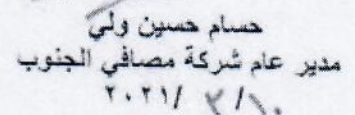 حسام حسين ولي
مدير عام شركة مصافي الجنوب
٢٠٢١/ ٣ /١٠